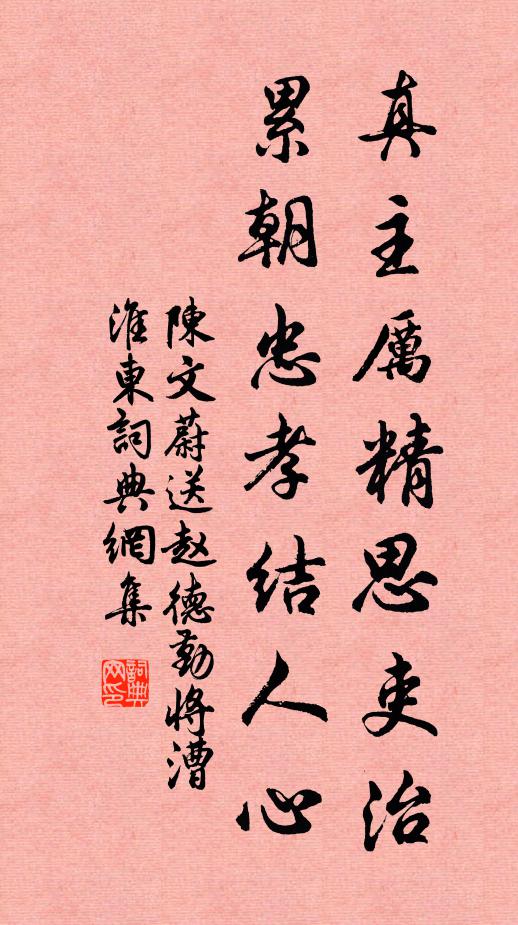 真主厲精思吏治
累朝忠孝结人心
陳文蔚送赵德勤将漕
淮東詞典網集
詞典
网印